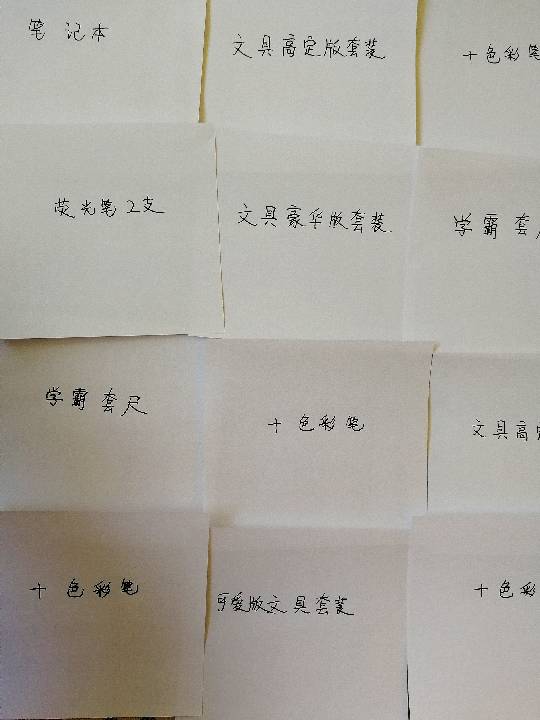 笔记本
文具高定版套装
十色彩笔
荧光笔2支
文具豪华版套装
学霸套
学霸套尺
十色彩笔
文具高
十色彩笔
可爱版文具套装
十色彩